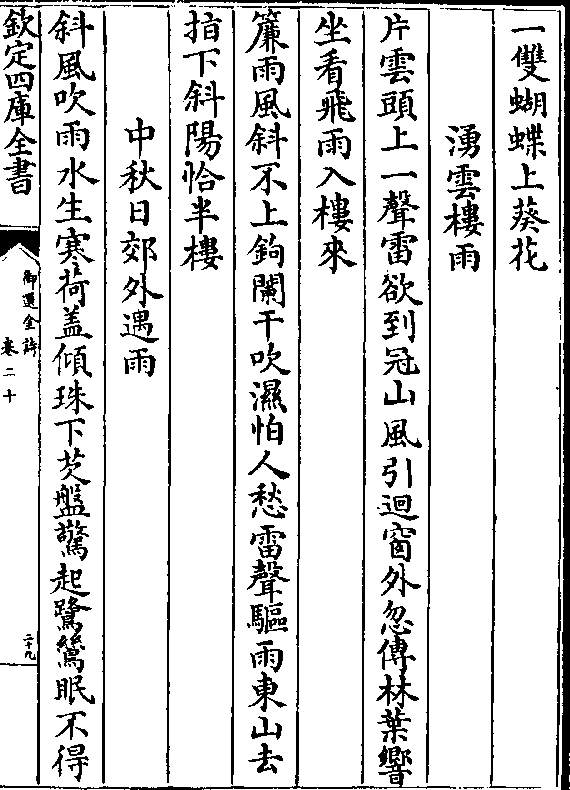 一雙蝴蝶上葵花
湧雲樓雨
片雲頭上一聲雷欲到冠山風引迴窗外忽傳林葉響
坐看飛雨入樓來
簾雨風斜不上鉤闌干吹濕怕人愁雷聲驅雨東山去
指下斜陽恰半樓
中秋日郊外遇雨
斜風吹雨水生寒荷盖傾珠下芡盤驚起鷺鶿眠不得
欽定四庫全書
御選金詩
卷二十
二十九